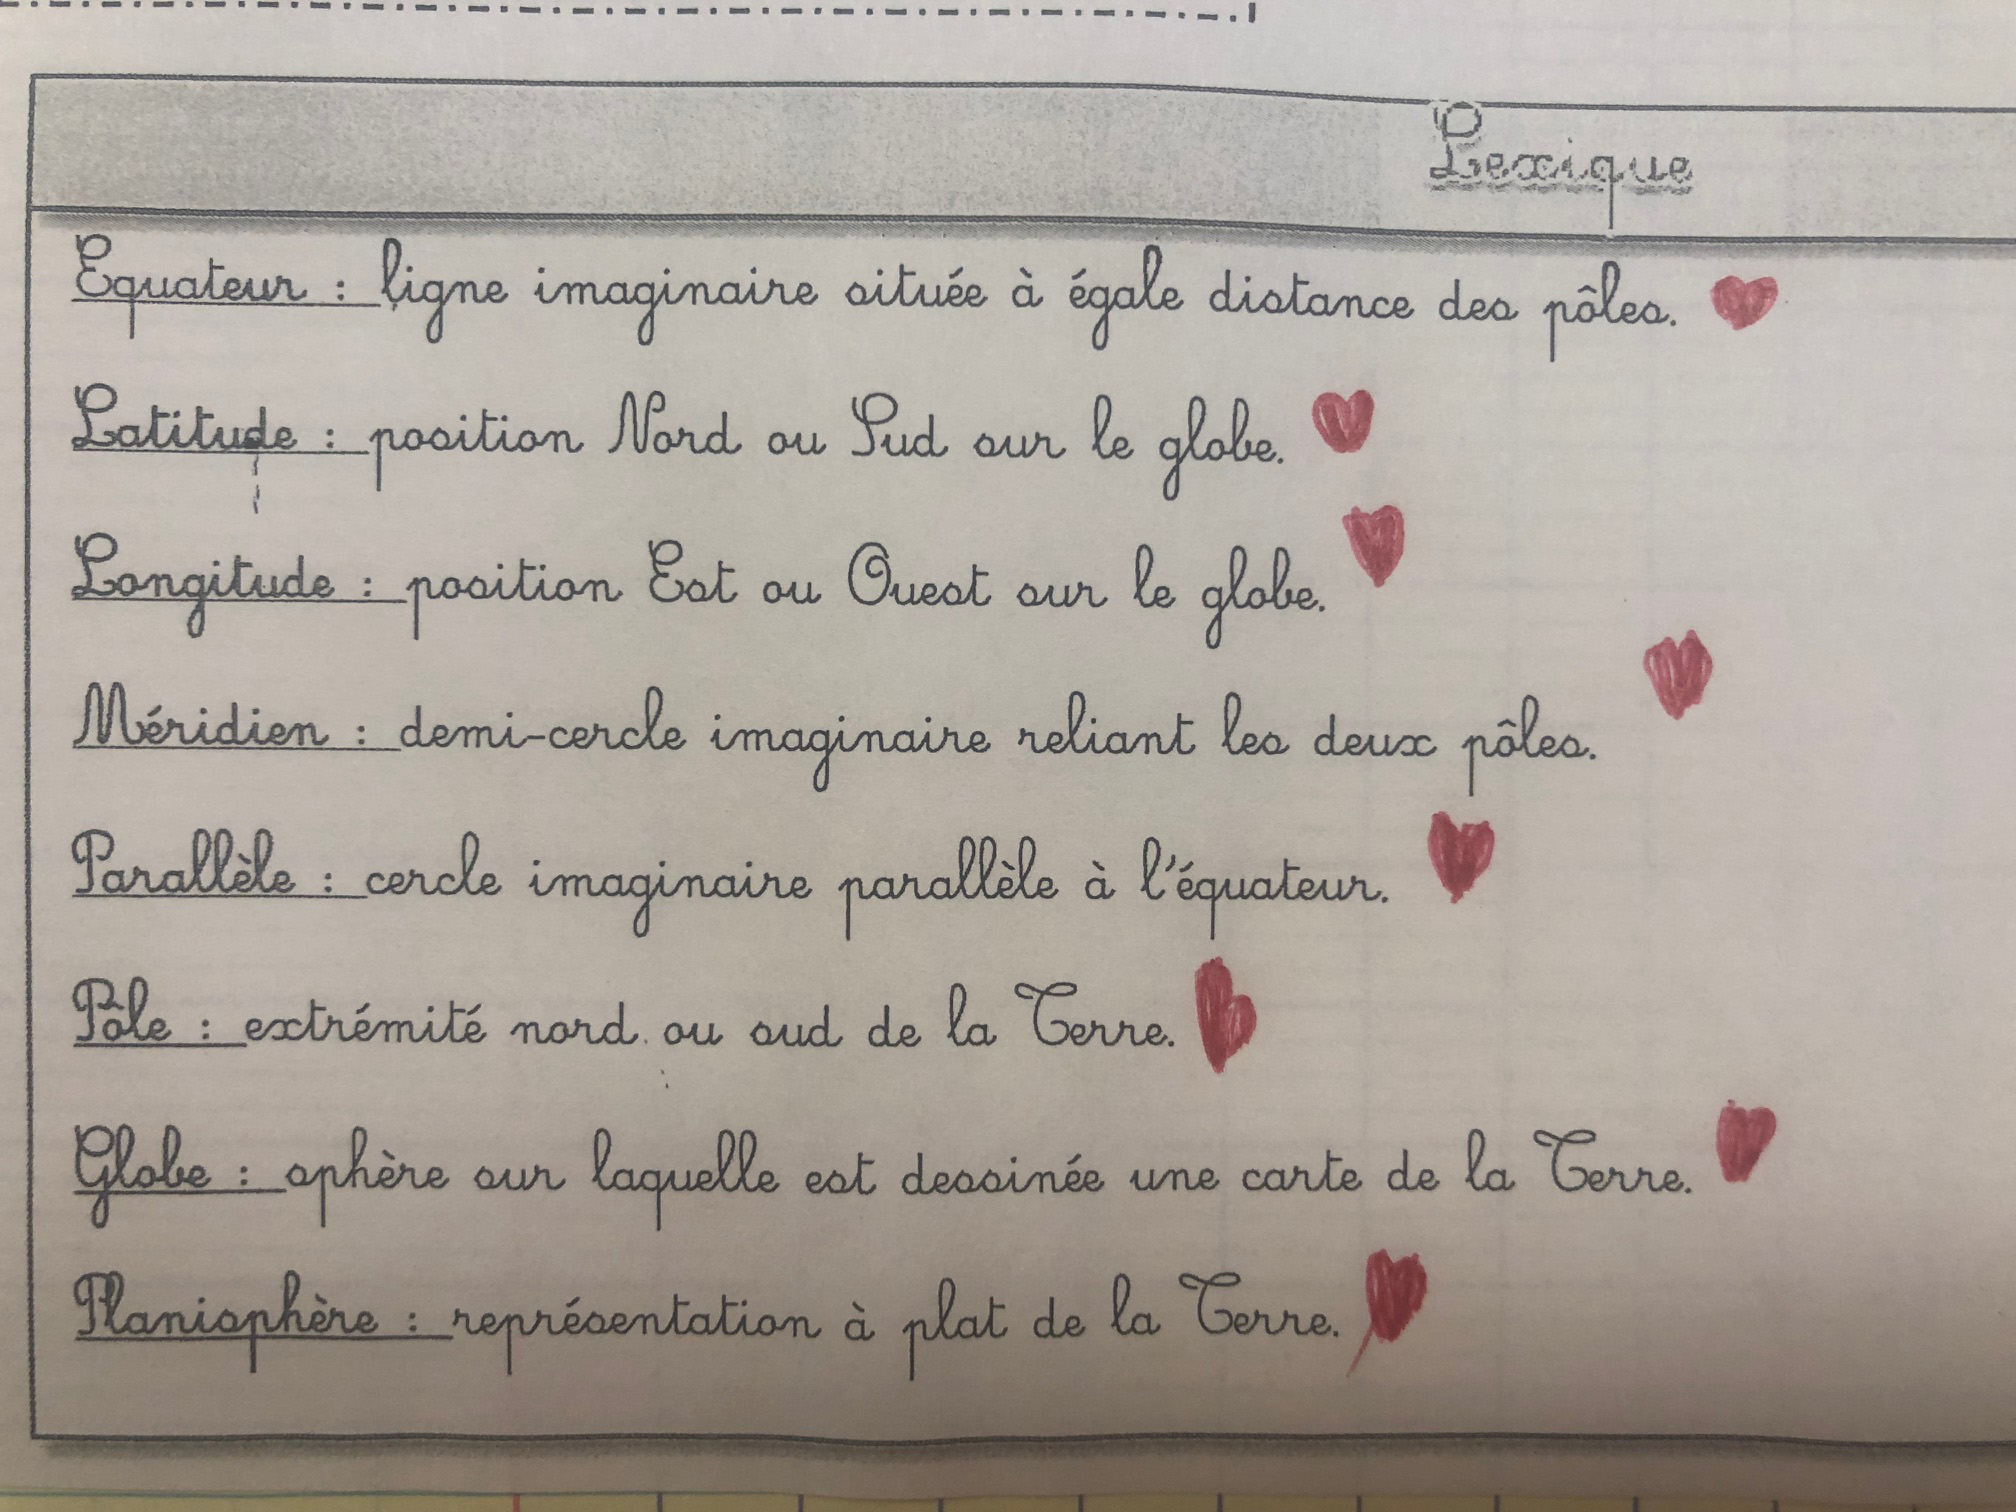 Lexique
Equateur : ligne imaginaire située à égale distance des pôles.
Latitude : position Nord ou Sud sur le globe.
Longitude : position Est ou Ouest sur le globe.
Méridien : demi-cercle imaginaire reliant les deux pôles.
Parallèle : cercle imaginaire parallèle à l'équateur.
Pôle : extrémité nord ou sud de la Terre.
Globe : sphère sur laquelle est dessinée une carte de la Terre.
Planisphère : représentation à plat de la Terre.